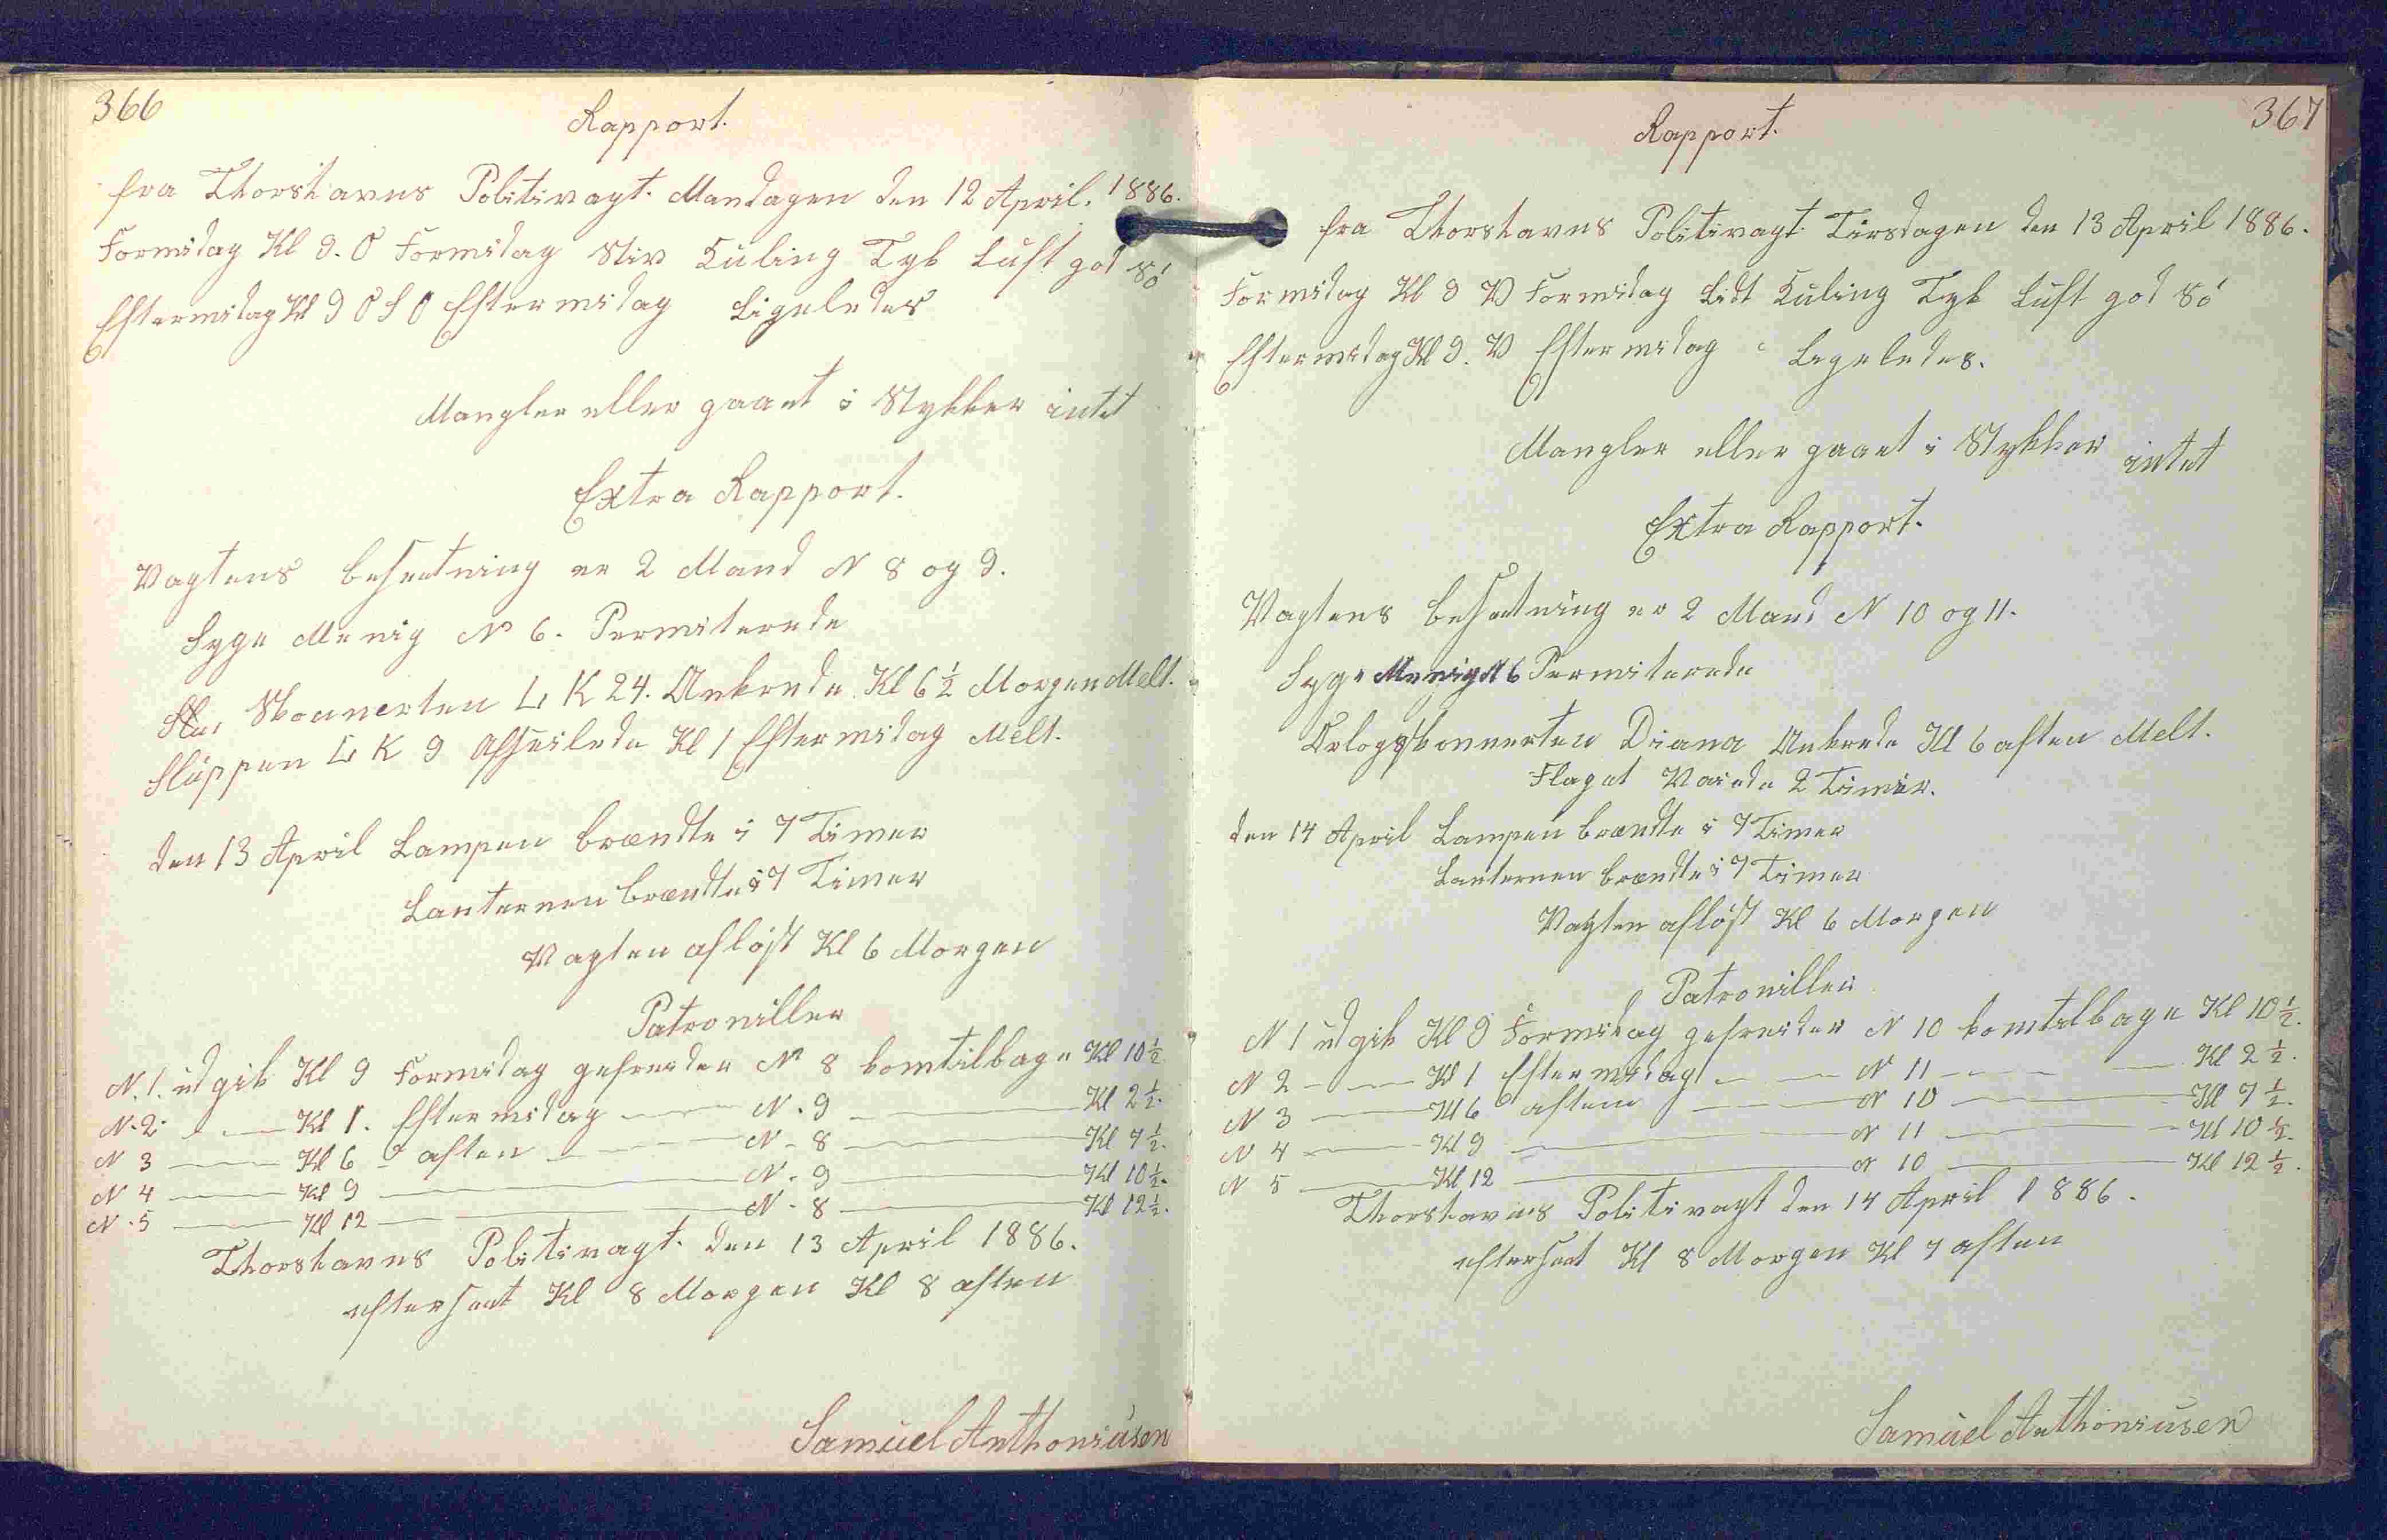 366
Rapport.
fra Thorshavns Politivagt. Mandagen den 12 April. 1886.
Formidag Kl 9. O Formidag Stiv Kuling Tyk Luft god Sö
Eftermidag Kl 9 O S O Eftermidag Ligeledes
Mangler eller gaaet i Stykker intet
Extra Rapport.
Vagtens besætning er 2 Mand N 8 og 9.
Syge Menig N 6. Permiterede
Skonnerten L K 24. Ankrede Kl 6 ½ Morgen Melt.
Sluppen L K 9 Afseilede Kl 1 Eftermidag Melt.
den 13 April Lampen brændte i 7 Timer
Lanternen brændte i 7 Timer
Vagten afløst Kl 6 Morgen
Patroniller
N. 1. udgik Kl 9 Formidag gefreider N 8 komtilbage Kl 10 ½
N. 2. — Kl 1. Eftermidag — N. 9 — Kl 2 ½.
N 3 — Kl 6 — aften — N - 8 — Kl 7 ½.
N 4 — Kl 9 — N - 9 — Kl 10 ½.
N. 5 — Kl 12 — N - 8 — Kl 12 ½.
Thorshavns Politivagt. den 13 April 1886.
efterseet Kl 8 Morgen Kl 8 aften
Samuel Anthoniusen
367
Rapport.
fra Thorshavns Politivagt. Tirsdagen den 13 April 1886.
Formidag Kl 9 V Formidag Lidt Kuling Tyk Luft god Sö
Eftermidag Kl 9. V Eftermidag Ligeledes.
Mangler eller gaaet i Stykker intet
Extra Rapport.
Vagtens besætning er 2 Mand N 10 og 11.
Syge Menig N 6 Permiterede
Orlogsskonnerten Diana Ankrede Kl 6 aften Melt.
Flaget Vaiede 2 Timer.
den 14 April Lampen brændte i 7 Timer
Lanternen brændte i 7 Timer
Vagten afløst Kl 6 Morgen
Patroniller
N 1 udgik Kl 9 Formidag gefreider N 10 komtilbage Kl 10 ½.
N 2 — Kl 1 Eftermidag — N 11 — Kl 2 ½.
N 3 — Kl 6 aften — N 10 — Kl 7 ½.
N 4 — Kl 9 — N 11 — Kl 10 ½.
N 5 — Kl 12 — N 10 — Kl 12 ½.
Thorshavns Politivagt den 14 April 1886.
efterseet Kl 8 Morgen Kl 7 aften
Samuel Anthoniusen